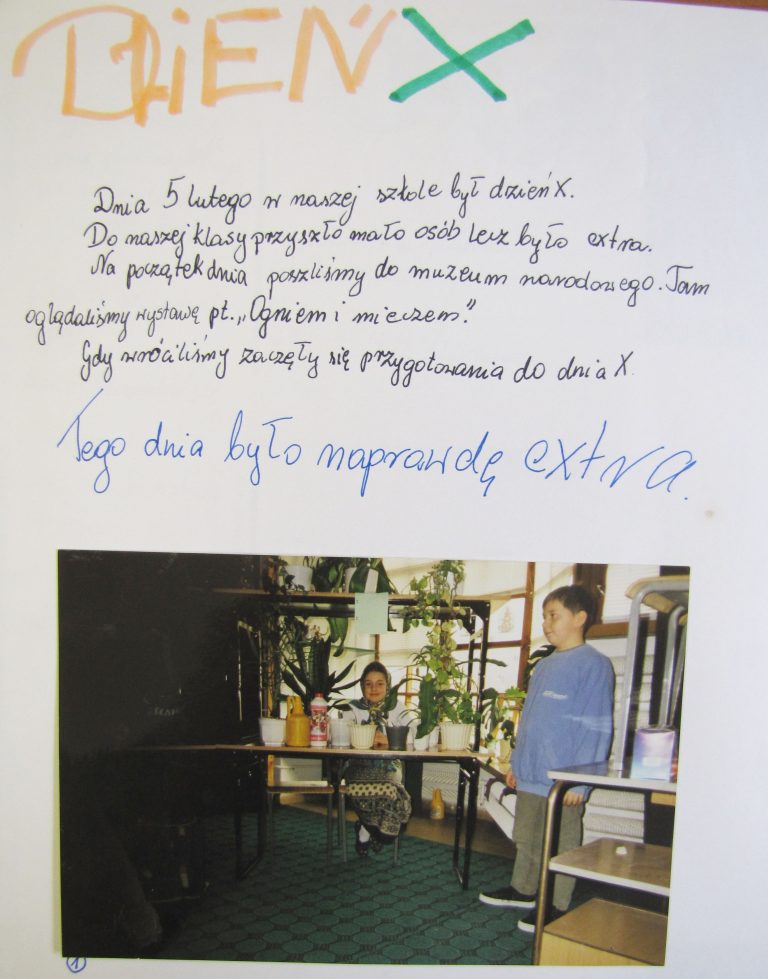 DZIEŃ X
Dnia 5 lutego w naszej szkole był dzień X.
Do naszej klasy przyszło mało osób lecz było extra.
Na początek dnia poszliśmy do muzeum narodowego. Tam
oglądaliśmy wystawę pt. „Ogniem i mieczem."
Gdy wróciliśmy zaczęły się przygotowania do dnia X.
Tego dnia było naprawdę extra.
1